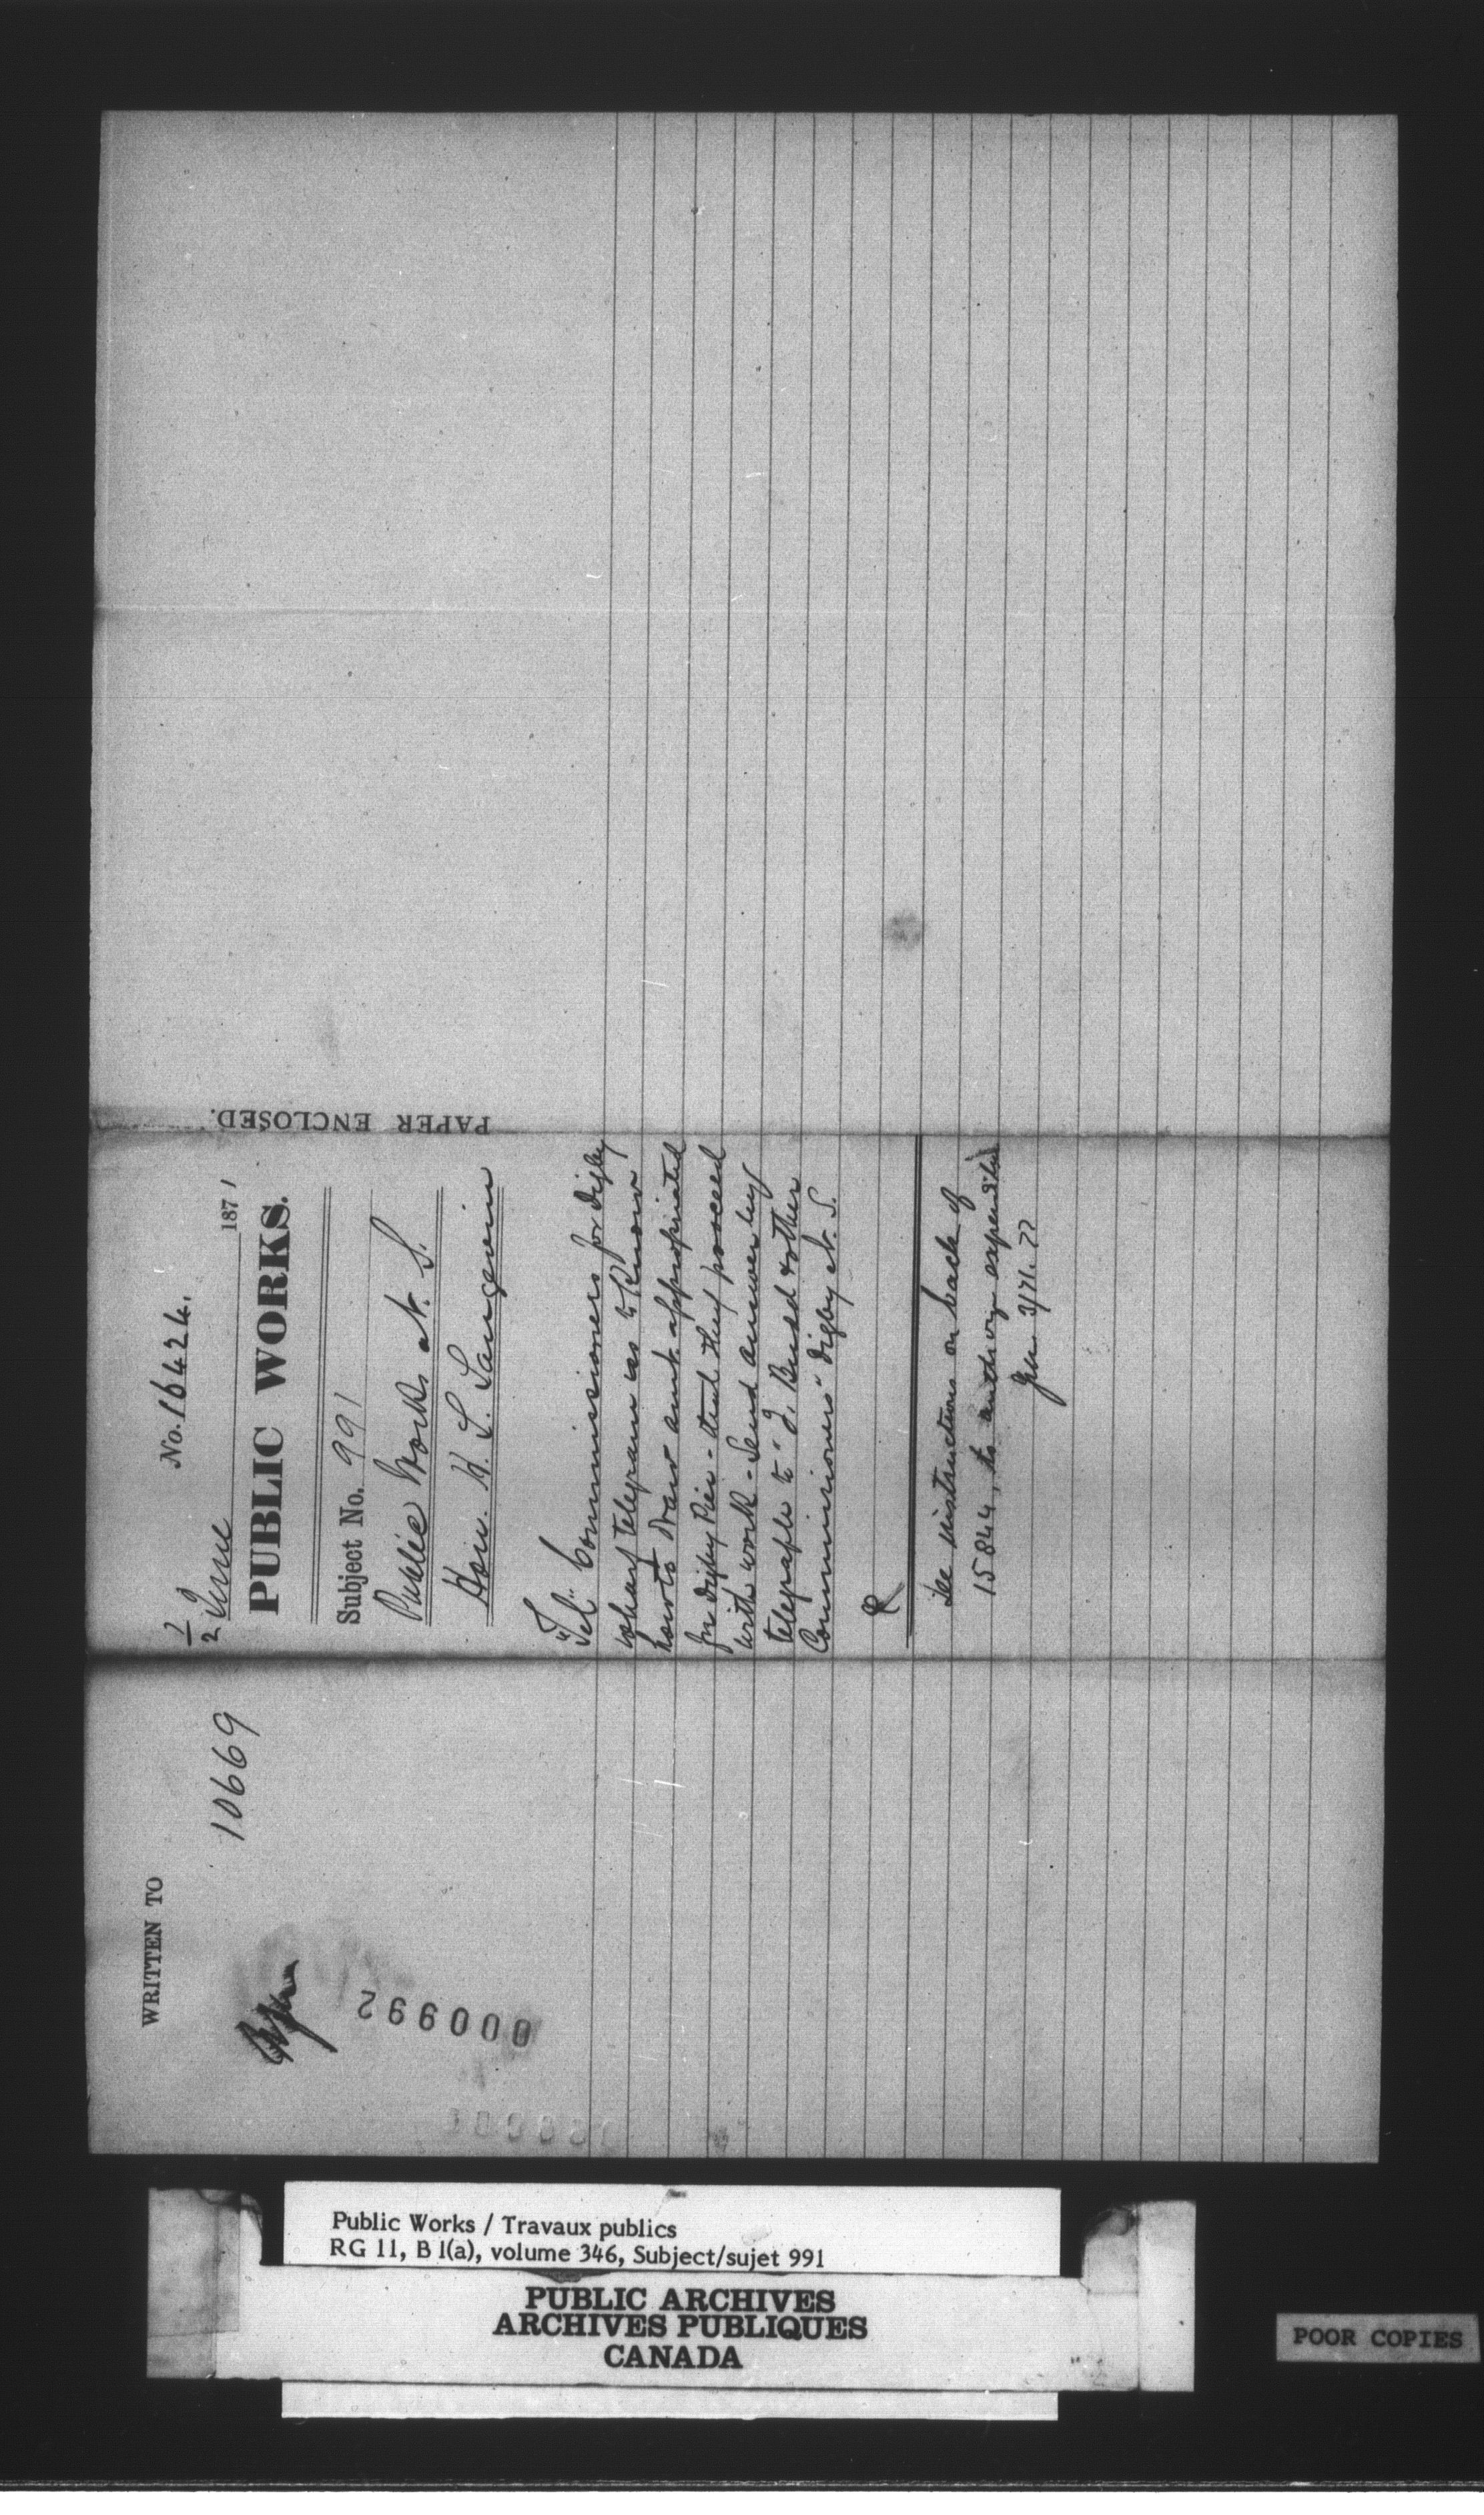 WRITTEN TO
10669
000992
1/2 June
No. 16424.
1871
PUBLIC WORKS.
Subject No. 991
Public Works N. S.
Hon. H. L. Langevin
"Tel" Commissioners for Digby
wharf telegram as to know
how to draw amt. appropriated
for Digby Pier - that they proceed
with work - Send answer by
telegraph to "J. Budd & other
Commissioners" Digby N. S.
R
See instructions on back of
15844, to authorize expenditure
PAPER ENCLOSED.
Public Works / Travaux publics
RG 11, B 1(a), volume 346, Subject/sujet 991
PUBLIC ARCHIVES
ARCHIVES PUBLIQUES
CANADA
POOR COPIES